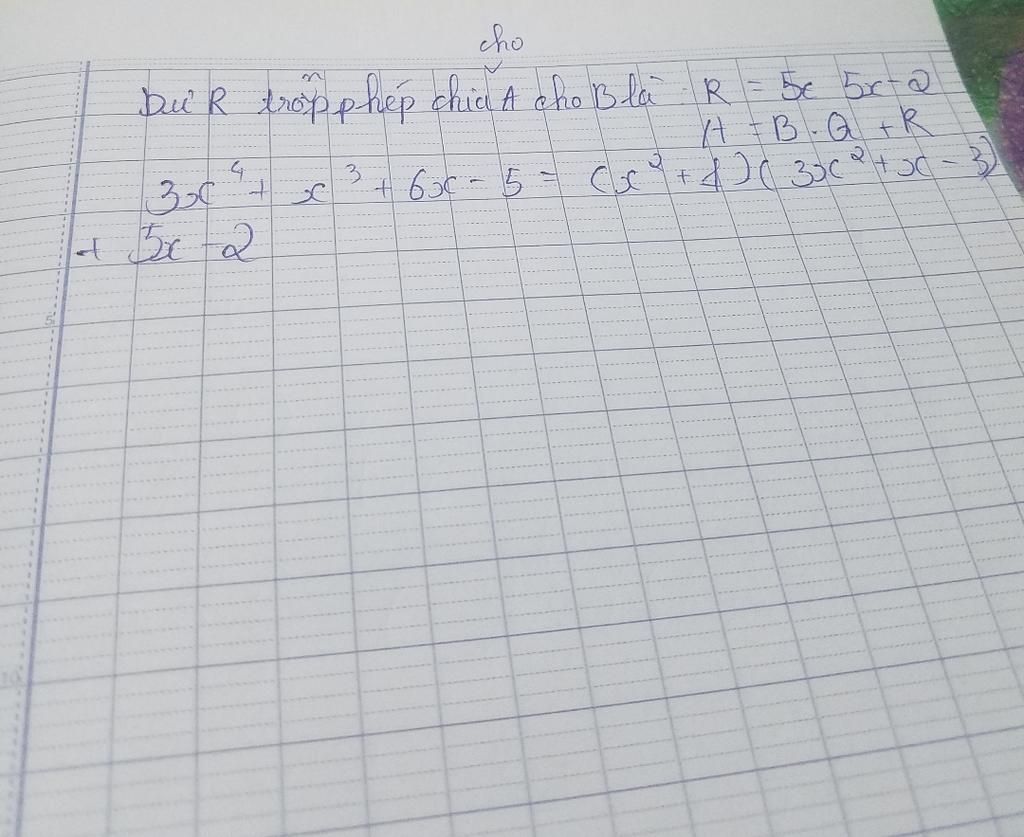 cho
Dư R trong phép chia A cho B là R = 5x 5x - 2
A = B . Q + R
3x⁴ + x³ + 6x - 5 = (x² + 1)(3x² + x - 3)
+ 5x - 2
5
10